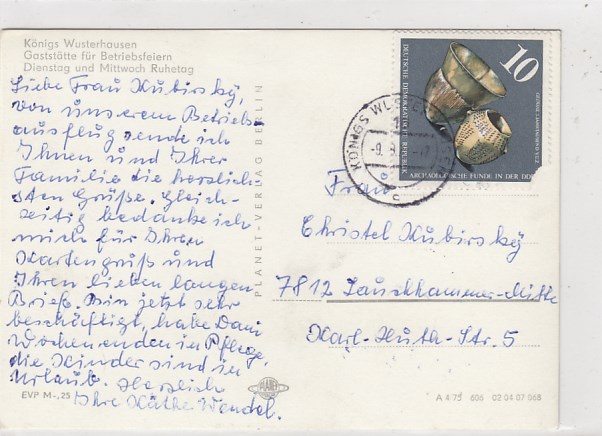 Königs Wusterhausen
Gaststätte für Betriebsfeiern
Dienstag und Mittwoch Ruhetag
Liebe Frau Kubirsky,
von unserem Betriebs-
ausflug sende ich
Ihnen und Ihrer
Familie die herzlich-
sten Grüße. Gleich-
zeitig bedanke ich
mich für Ihren
Kartengruß und
Ihren lieben langen
Brief. Bin jetzt sehr
beschäftigt, habe Dani
wochenenden in Pflege,
die Kinder sind in
Urlaub. Herzlich
Ihre Käthe Wendel.
EVP M-,25
PLANET-VERLAG BERLIN
DEUTSCHE DEMOKRATISCHE REPUBLIK
10
ARCHÄOLOGISCHE FUNDE IN DER DDR
KÖNIGS WUSTERHAUSEN
Frau
Christel Kubirsky
7812 Lauchhammer-Mitte
Karl-Huth-Str. 5
PLANET
A 4/75 606 02 04 07 068